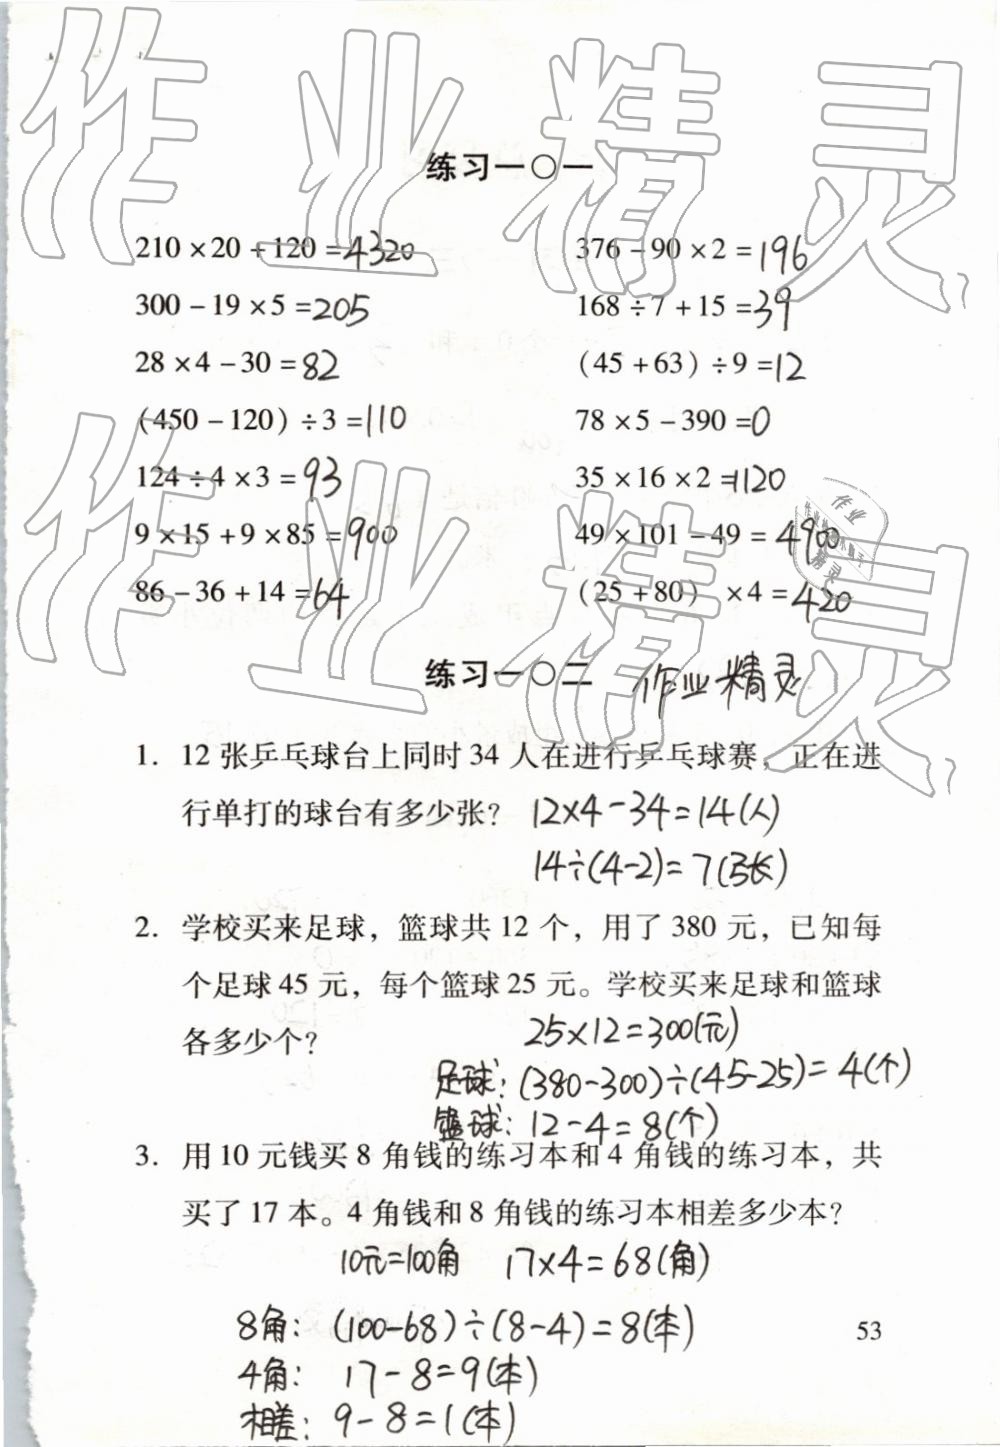 作业精灵
练习一〇一
210 × 20 + 120 = 4320 376 - 90 × 2 = 196
300 - 19 × 5 = 205 168 ÷ 7 + 15 = 39
28 × 4 - 30 = 82 (45 + 63) ÷ 9 = 12
(450 - 120) ÷ 3 = 110 78 × 5 - 390 = 0
作业精灵
124 ÷ 4 × 3 = 93 35 × 16 × 2 = 1120
9 × 15 + 9 × 85 = 900 49 × 101 - 49 = 4900
作业
精灵
86 - 36 + 14 = 64 (25 + 80) × 4 = 420
练习一〇二 作业精灵
1. 12 张乒乓球台上同时 34 人在进行乒乓球赛,正在进
行单打的球台有多少张? 12×4-34=14(人)
14÷(4-2)=7(张)
2. 学校买来足球,篮球共 12 个,用了 380 元,已知每
个足球 45 元,每个篮球 25 元。学校买来足球和篮球
各多少个? 25×12=300(元)
足球:(380-300)÷(45-25)=4(个)
篮球:12-4=8(个)
3. 用 10 元钱买 8 角钱的练习本和 4 角钱的练习本,共
买了 17 本。4 角钱和 8 角钱的练习本相差多少本?
10元=100角 17×4=68(角)
8角:(100-68)÷(8-4)=8(本)
53
4角: 17-8=9(本)
相差: 9-8=1(本)